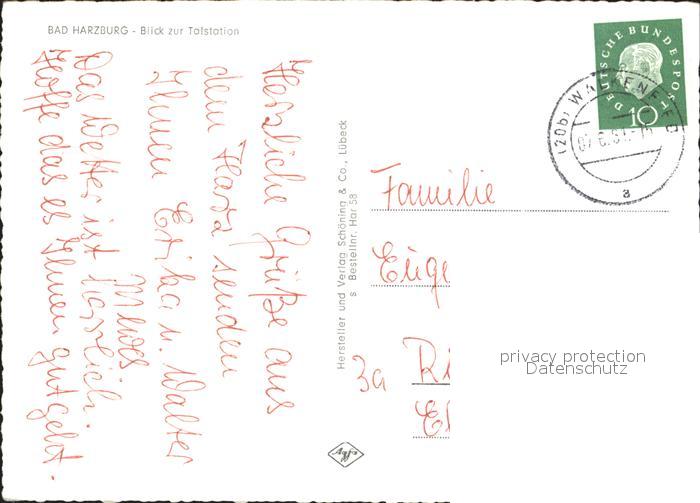 BAD HARZBURG - Blick zur Talstation
Herzliche Grüße aus
dem Harz senden
Ihnen Erika u. Walter
Mews
Das Wetter ist herrlich.
Hoffe das es Ihnen gut geht.
Hersteller und Verlag Schöning & Co., Lübeck
s Bestellnr. Har 58
DEUTSCHE BUNDESPOST
10
(20b) WALKENRIED
a
Familie
Euge
3a Ri
El
privacy protection
Datenschutz
Agfa